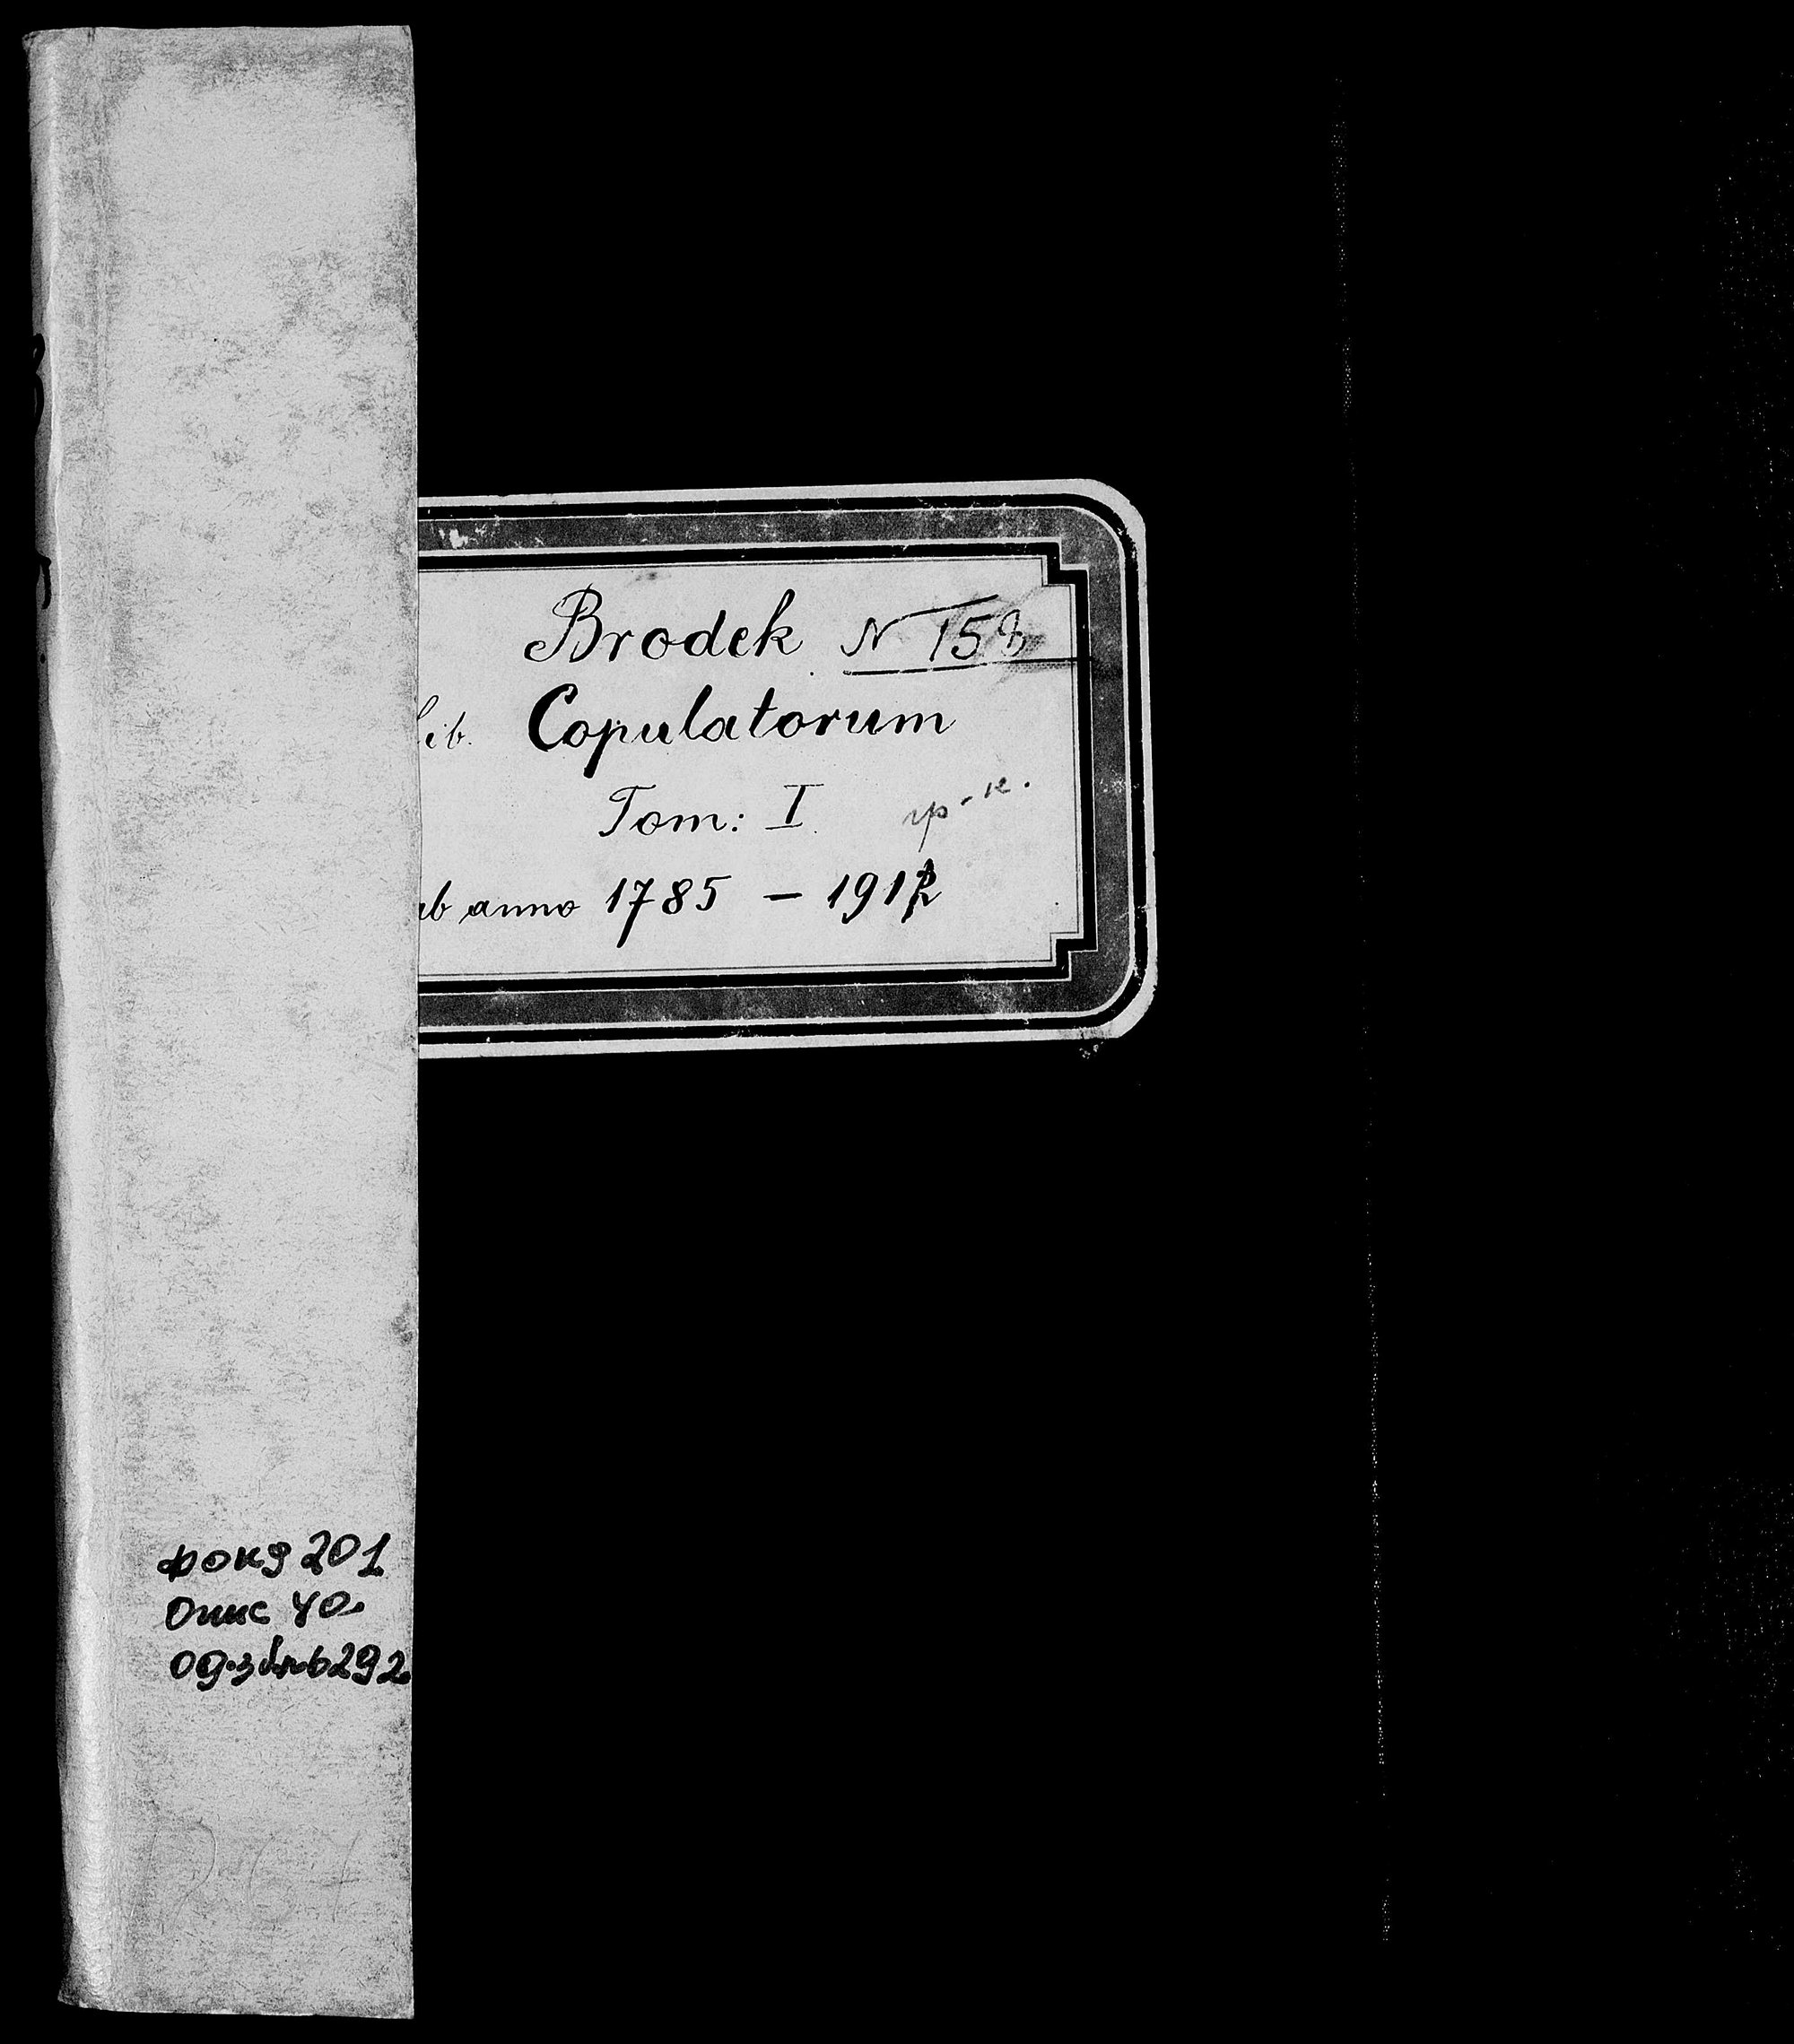 Brodek N 158
Lib. Copulatorum
Tom: I. гр-к.
ab anno 1785 – 1912
фонд 201
Опис 4а
од.збер 6292